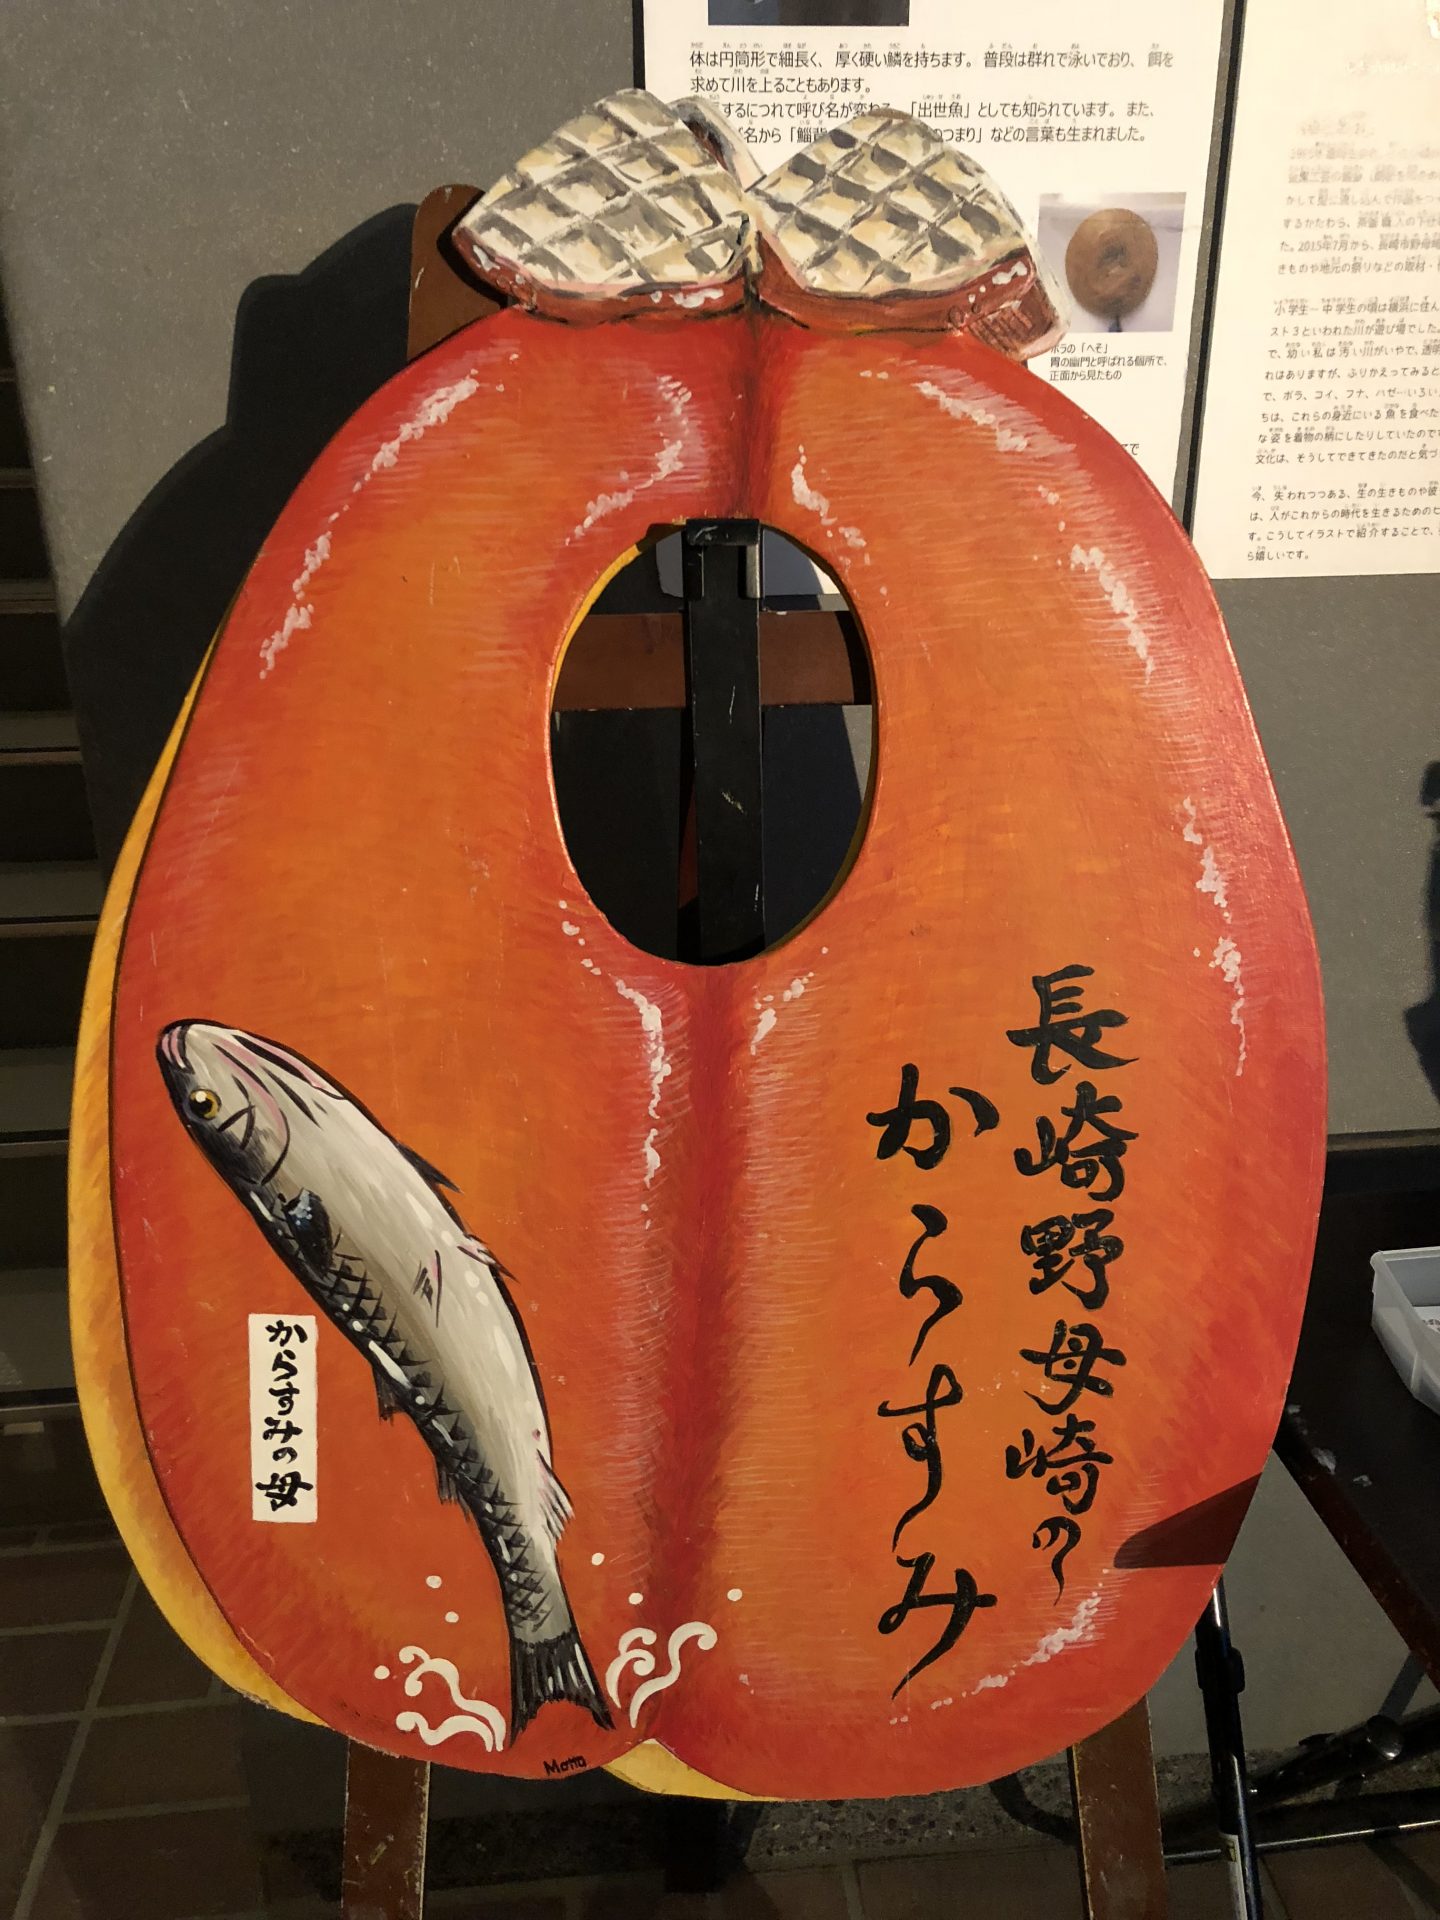 体は円筒形で細長く、厚く硬い鱗を持ちます。普段は群れで泳いでおり、餌を
求めて川を上ることもあります。
するにつれて呼び名が変わる 「出世魚」としても知られています。また、
名から「鯔背 のつまり」などの言葉も生まれました。
ボラの「へそ」
胃の幽門と呼ばれる個所で、
正面から見たもの
かして型に流し込んで作品をつ
するかたわら、茶釜職人の下仕
た。2015年7月から、長崎市野母崎
きものや地元の祭りなどの取材・
小学生～中学生の頃は横浜に住ん
スト3といわれた川が遊び場でした。
で、幼い私は汚い川がいやで、透明
れはありますが、ふりかえってみると
で、ボラ、コイ、フナ、ハゼ…いろい
ちは、これらの身近にいる魚を食べた
な姿を着物の柄にしたりしていたのです
文化は、そうしてできてきたのだと気づ
今、失われつつある、生の生きものや彼
は、人がこれからの時代を生きるためのヒ
す。こうしてイラストで紹介することで、
ら嬉しいです。
長崎野母崎の
からすみ
からすみの母
Motto